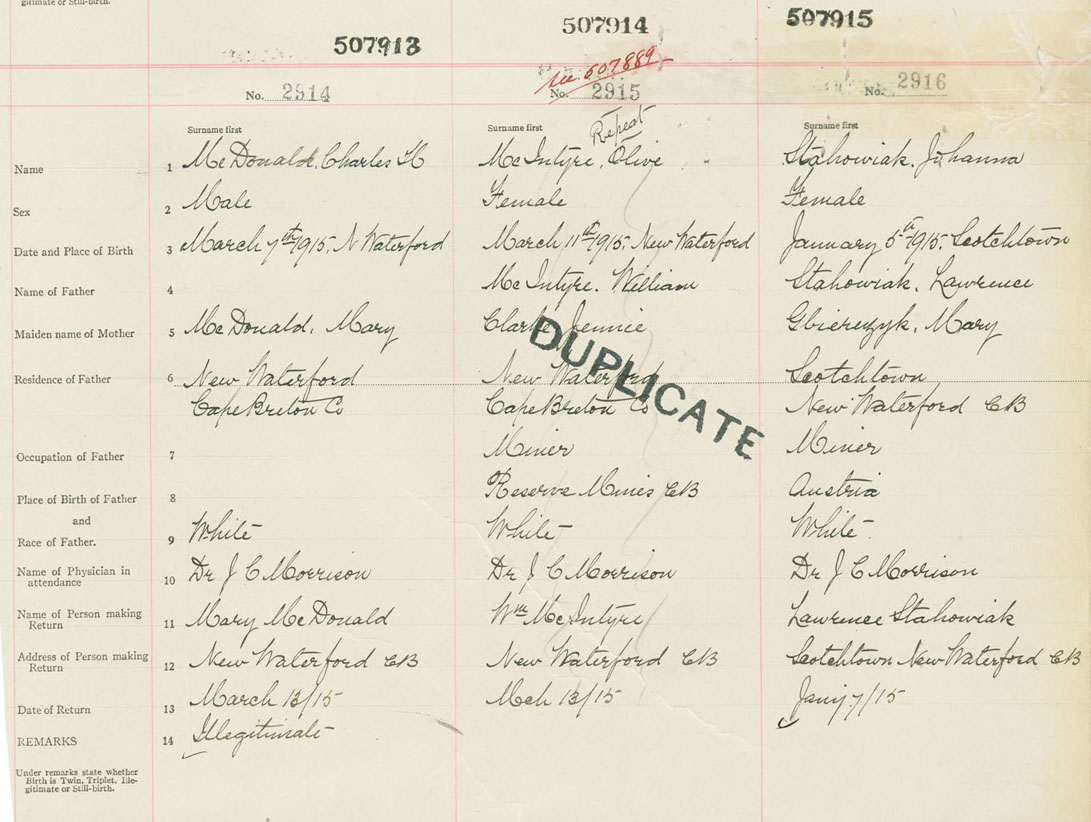 gitimate or Still-birth.
507913 507914 507915
see 507889
No. 2914 No. 2915 No. 2916
Repeat
Surname first Surname first Surname first
Name 1 McDonald, Charles H McIntyre, Olive Stahowiak, Johanna
Sex 2 Male Female Female
Date and Place of Birth 3 March 7th 1915, N Waterford March 11th 1915, New Waterford January 5th 1915, Scotchtown
Name of Father 4 McIntyre, William Stahowiak, Lawrence
Maiden name of Mother 5 McDonald, Mary Clarke, Jennie Gbierczyk, Mary
DUPLICATE
Residence of Father 6 New Waterford New Waterford Scotchtown
Cape Breton Co Cape Breton Co New Waterford CB
Occupation of Father 7 Miner Miner
Place of Birth of Father 8 Reserve Mines CB Austria
and
Race of Father. 9 White White White
Name of Physician in
attendance 10 Dr J C Morrison Dr J C Morrison Dr J C Morrison
Name of Person making
Return 11 Mary McDonald Wm McIntyre Lawrence Stahowiak
Address of Person making
Return 12 New Waterford CB New Waterford CB Scotchtown New Waterford CB
Date of Return 13 March 13/15 Mch 13/15 Jany 7/15
REMARKS 14 Illegitimate
Under remarks state whether
Birth is Twin, Triplet, Ille-
gitimate or Still-birth.